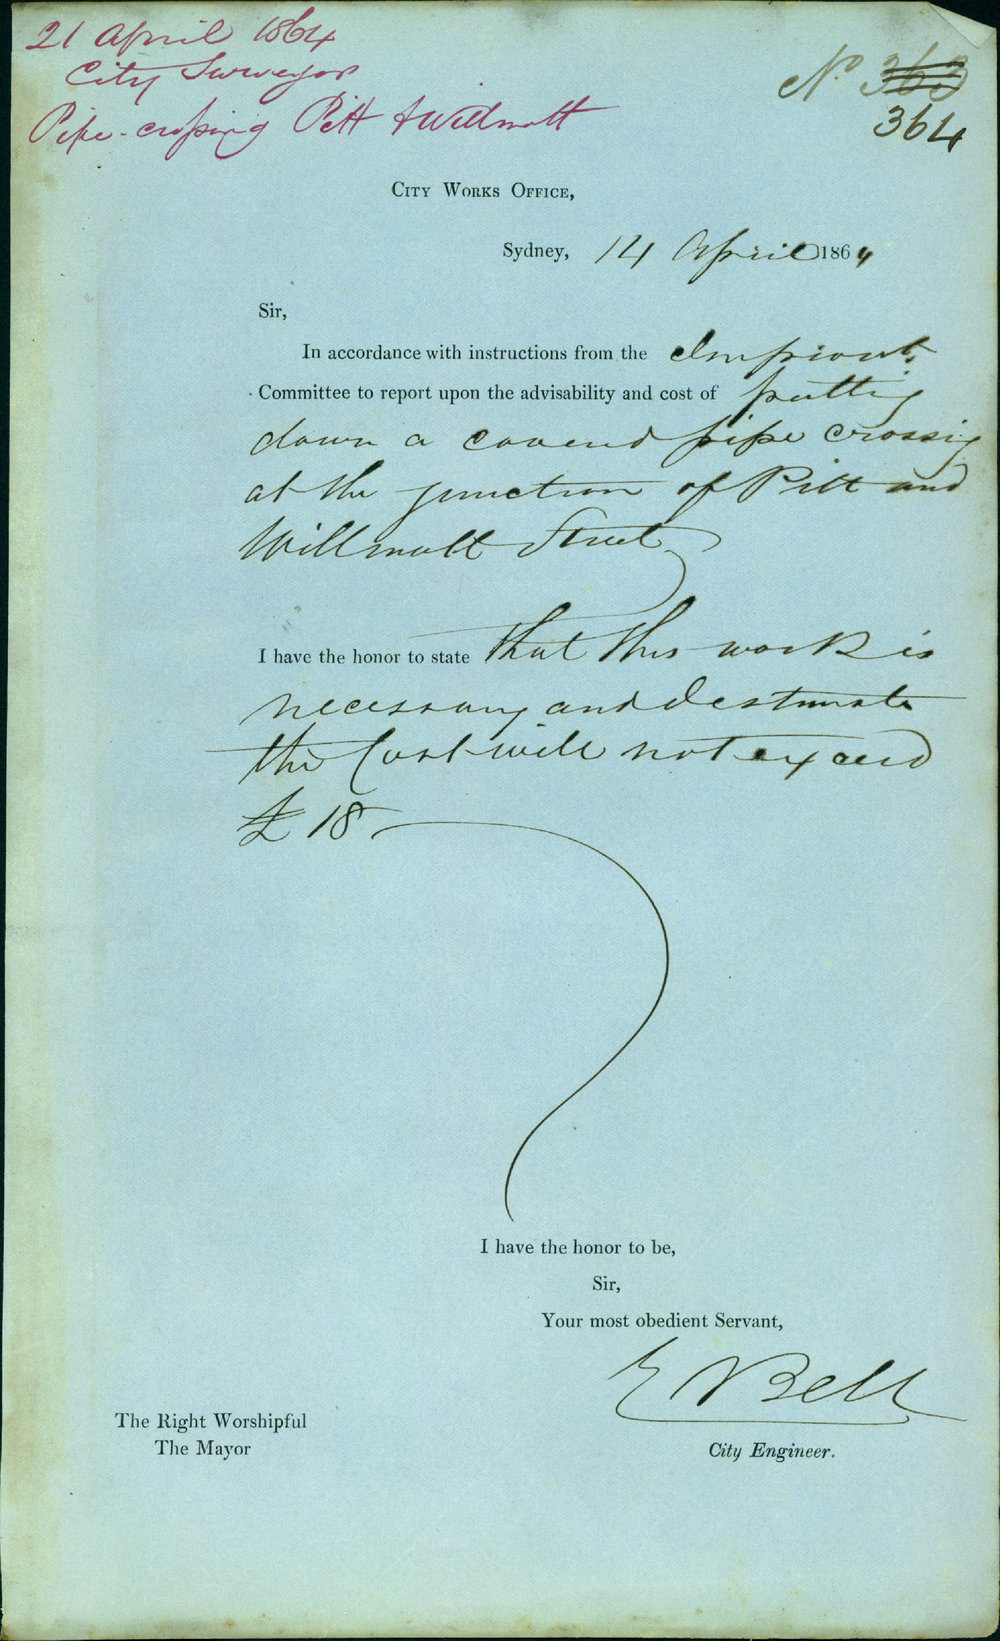 21 April 1864
City Surveyor
Pipe-crossing Pitt & Willmott
No. 363
364
City Works Office,
Sydney, 14 April 1864
Sir,
In accordance with instructions from the Improvt.
Committee to report upon the advisability and cost of putting
down a covered pipe crossing
at the junction of Pitt and
Willmott Street
I have the honor to state that this work is
necessary and I estimate
the Cost will not exceed
£18
I have the honor to be,
Sir,
Your most obedient Servant,
E Bell
The Right Worshipful
The Mayor
City Engineer.